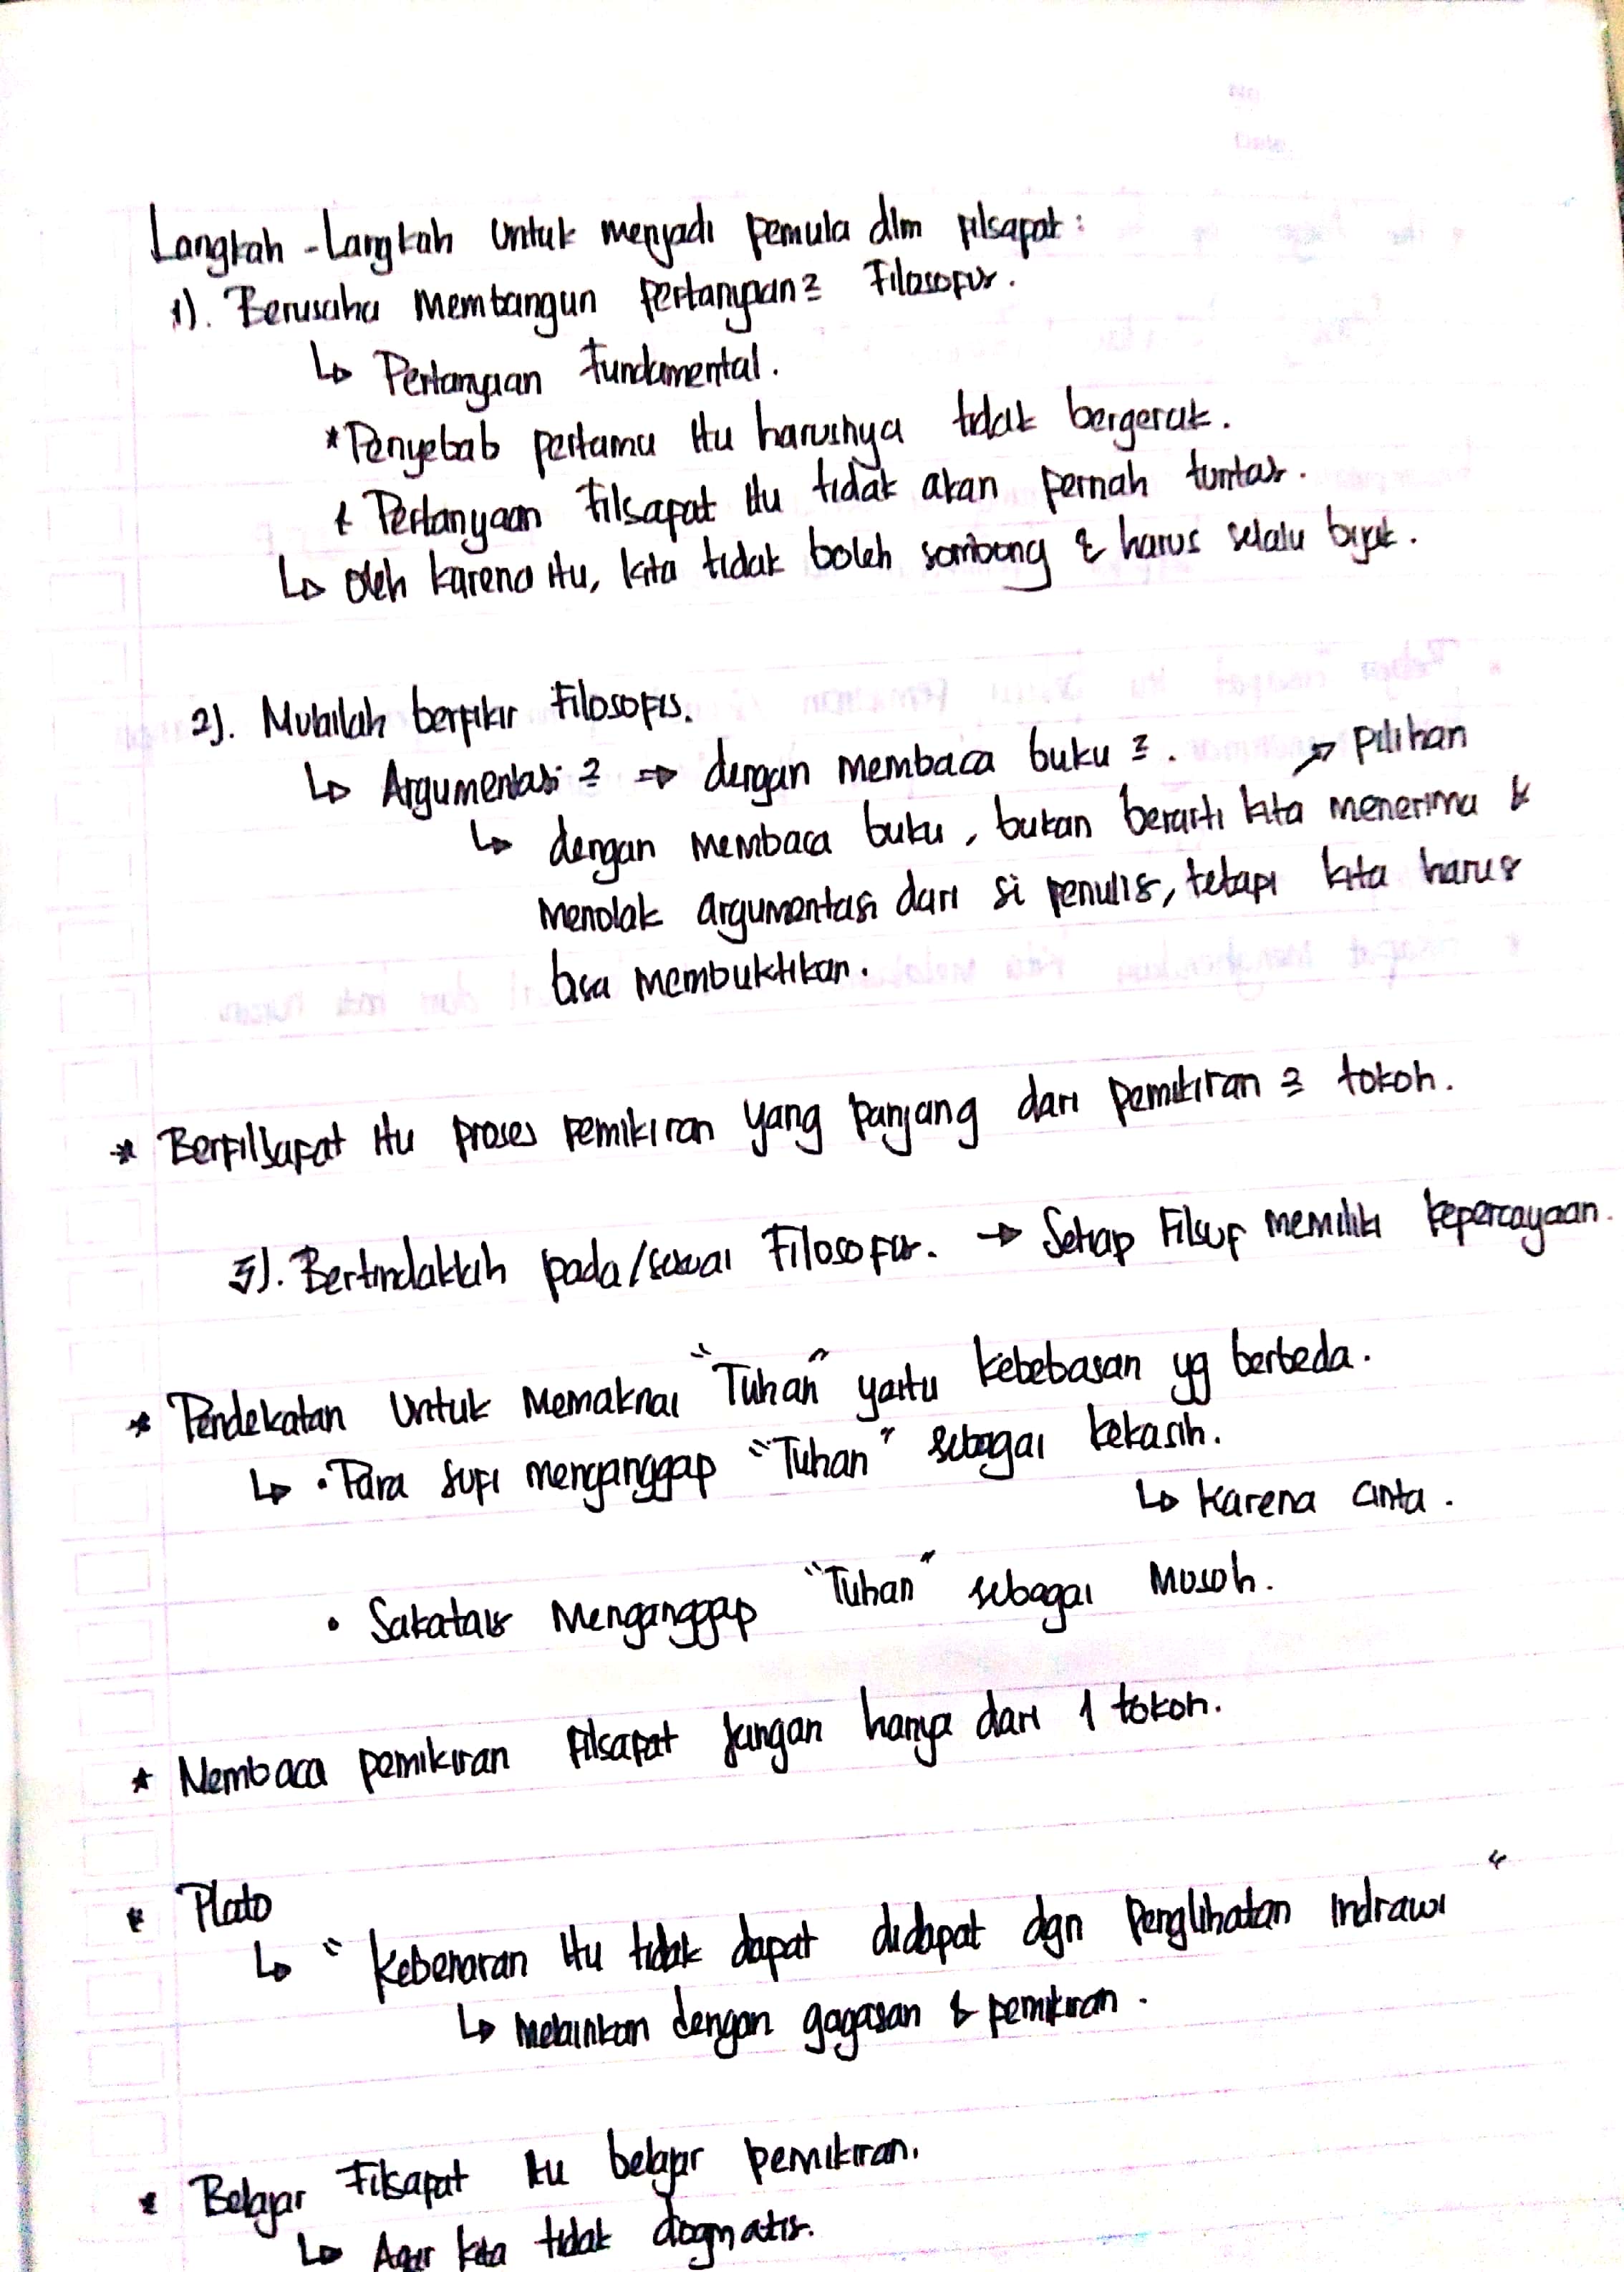 No
Date
Langkah - Langkah untuk menjadi pemula dlm filsapat :
1). Berusaha Membangun pertanyaan2 Filosofis.
↳ Pertanyaan Fundamental.
* Penyebab pertama itu harusnya tidak bergerak.
* Pertanyaan Filsapat itu tidak akan pernah tuntas.
↳ Oleh karena itu, kita tidak boleh sombong & harus selalu bijak.
2). Mulailah berfikir Filosofis.
↳ Argumentasi2 ⇒ dengan membaca buku2. → pilihan
↳ dengan membaca buku, bukan berarti kita menerima &
Menolak argumentasi dari si penulis, tetapi kita harus
bisa membuktikan.
* Berfilsapat itu proses pemikiran yang panjang dari pemikiran2 tokoh.
3). Bertindaklah pada/sesuai Filosofis. → Setiap Filsuf memiliki kepercayaan.
* Pendekatan Untuk Memaknai "Tuhan" yaitu kebebasan yg berbeda.
↳ • Para sufi menganggap "Tuhan" sebagai kekasih.
↳ Karena cinta.
• Menganggap "Tuhan" sebagai Musoh.
* Membaca pemikiran Filsapat jangan hanya dari 1 tokoh.
* Plato
↳ " Kebenaran itu tidak dapat didapat dgn Penglihatan Indrawi "
↳ melainkan dengan gagasan & pemikiran.
* Belajar Filsapat itu belajar pemikiran.
↳ Agar kita tidak dogmatis.